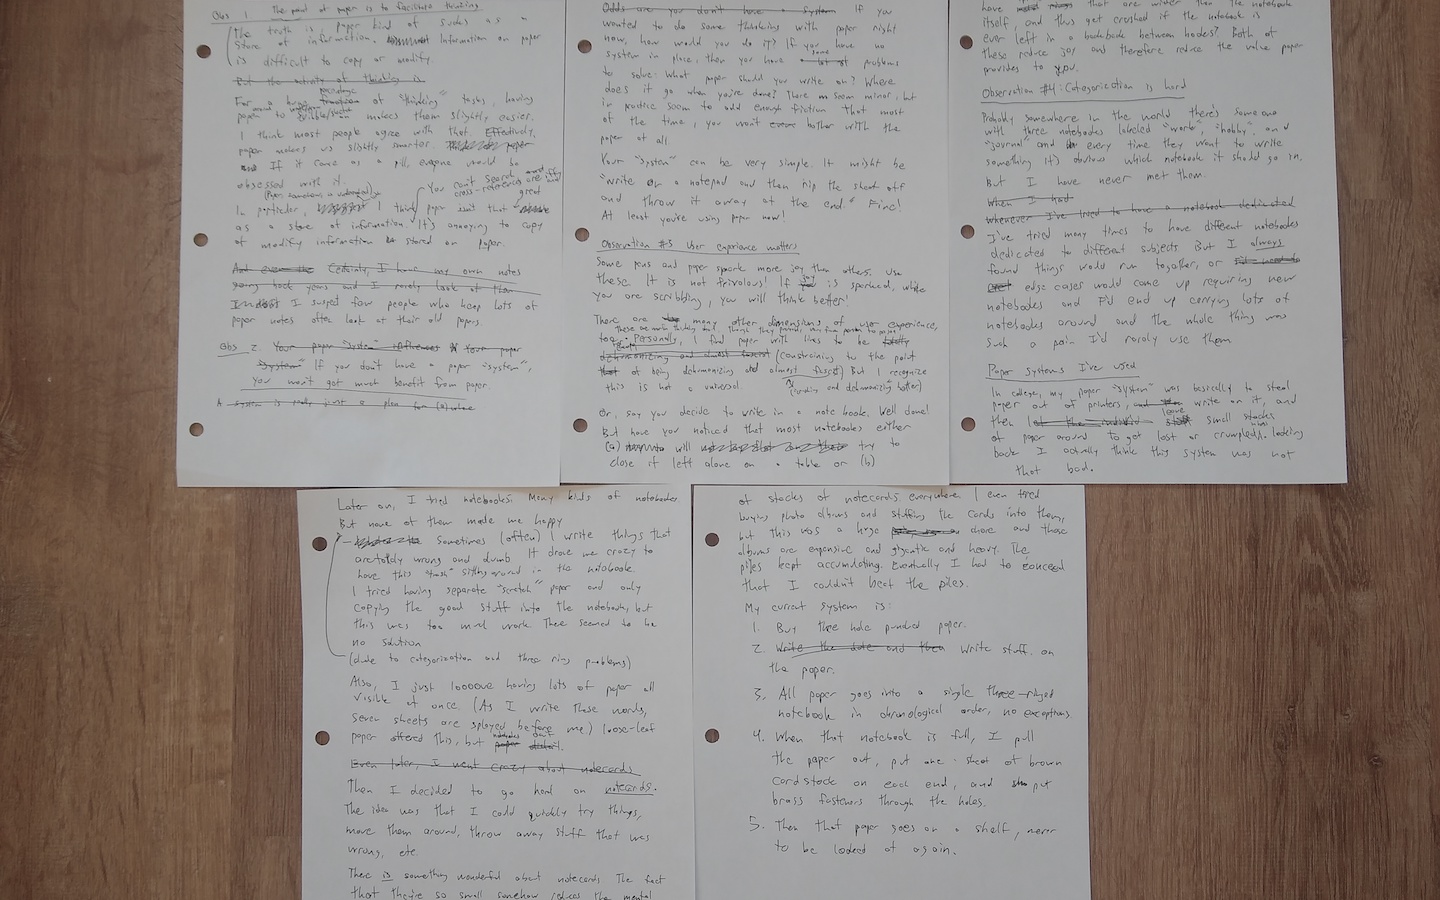 Obs 1. The point of paper is to facilitate thinking
The truth is, paper kind of sucks as a
store of information. Information on paper
is difficult to copy or modify
But the activity of thinking is
For a huge percentage of "thinking" tasks, having
paper to scribble makes them slightly easier.
I think most people agree with that. Effectively,
paper makes us slightly smarter.
If it came as a pill, everyone would be
obsessed with it.
You can't search
cross-reference
In particular, I think paper isn't that great
as a store of information. It's annoying to copy
or modify information stored on paper.
And Certainly, I have my own notes
going back years and I rarely look at them
I suspect few people who keep lots of
paper notes often look at their old papers.
Obs 2. Your paper "system" influences Your paper
"system" If you don't have a paper "system",
you won't get much benefit from paper.
A system is really just a plan for
Odds are you don't have a system If you
wanted to do some thinking with paper right
now, how would you do it? If you have no
system in place, then you have some problems
to solve: What paper should you write on? Where
does it go when you're done? These seem minor, but
in practice seem to add enough friction that most
of the time, you won't even bother with the
paper at all
Your "system" can be very simple. It might be
"write on a notepad and then rip the sheet off
and throw it away at the end." Fine!
At least you're using paper now!
Observation #3 User experience matters
Some pens and paper spark more joy than others. Use
these. It is not frivolous! If joy is sparked, while
you are scribbling, you will think better!
There are many other dimensions of user experience,
too. Personally, I find paper with lines to be
dehumanizing and almost fascist (constraining to the point
of being dehumanizing and almost fascist) But I recognize
this is not universal.
Or, say you decide to write in a notebook. Well done!
But have you noticed that most notebooks either
(a) will try to
close if left alone on a table or (b)
have rings that are wider than the notebook
itself, and thus get crushed if the notebook is
ever left in a backpack between bodies? Both of
these reduce joy and therefore reduce the value paper
provides to you.
Observation #4: Categorization is hard
Probably somewhere in the world there's someone
with three notebooks labeled "work", "hobby", and
"journal" and every time they want to write
something it's obvious which notebook it should go in.
But I have never met them.
When I had
Whenever I've tried to have a notebook dedicated
I've tried many times to have different notebooks
dedicated to different subjects But I always
found things would run together, or
edge cases would come up requiring new
notebooks and I'd end up carrying lots of
notebooks around and the whole thing was
such a pain I'd rarely use them
Paper Systems I've used
In college, my paper "system" was basically to steal
paper out of printers, write on it, and
then leave small stacks
of paper around to get lost or crumpled. looking
back I actually think this system was not
that bad.
Later on, I tried notebooks. Many kinds of notebooks
But none of them made me happy
- Sometimes (often) I write things that
are totally wrong and dumb. It drove me crazy to
have this "trash" sitting around in the notebook.
I tried having separate "scratch" paper and only
copying the good stuff into the notebook, but
this was too much work There seemed to be
no solution
(due to categorization and three ring problems)
Also, I just looooove having lots of paper all
visible at once (As I write these words,
seven sheets are splayed before me.) loose-leaf
paper offered this, but notebooks don't.
Even later, I went crazy about notecards
Then I decided to go hard on notecards.
The idea was that I could quickly try things,
move them around, throw away stuff that was
wrong, etc.
There is something wonderful about notecards The fact
that they're so small somehow reduces the mental
of stacks of notecards everywhere I even tried
buying photo albums and stuffing the cards into them,
but this was a huge chore and those
albums are expensive and gigantic and heavy. The
piles kept accumulating. Eventually I had to concede
that I couldn't beat the piles.
My current system is:
1. Buy three hole punched paper.
2. Write the date and then Write stuff. on
the paper.
3. All paper goes into a single three-ringed
notebook in chronological order, no exceptions
4. When that notebook is full, I pull
the paper out, put one sheet of brown
cardstock on each end, and put
brass fasteners through the holes.
5. Then that paper goes on a shelf, never
to be looked at again.